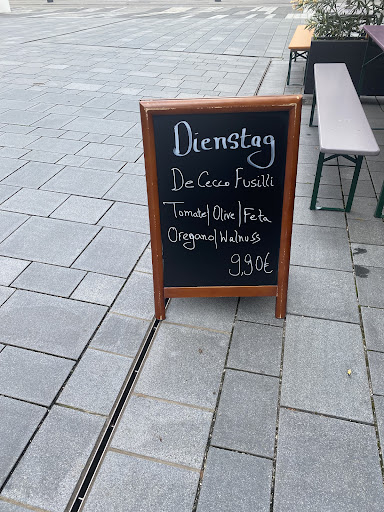 Dienstag
De Cecco Fusilli
Tomate/Olive/Feta
Oregano/Walnuss
9,90€